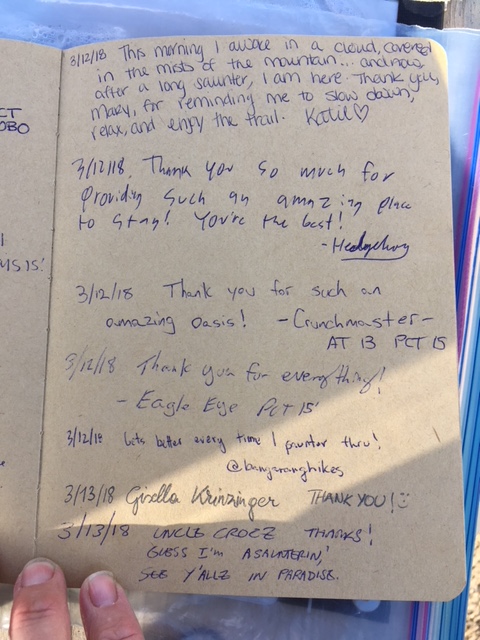 CT
OBO
MS IS!
3/12/18 This morning I awoke in a cloud, covered
in the mists of the mountain... and now
after a long saunter, I am here. Thank you,
Mary, for reminding me to slow down,
relax, and enjoy the trail. Katie♡
3/12/18, Thank you so much for
Providing such an amazing place
to stay! You're the best!
- Hedgehog
3/12/18 Thank you for such an
amazing oasis! - Crunchmaster -
AT 13 PCT 15
3/12/18 Thank you for everything!
- Eagle Eye PCT 15'
3/12/18 Gets better every time I saunter thru!
3/13/18 Gisella Krinzinger THANK YOU! :)
3/13/18 UNCLE THANKS!
GUESS I'M A SAUNTERIN,'
SEE Y'ALLZ IN PARADISE.